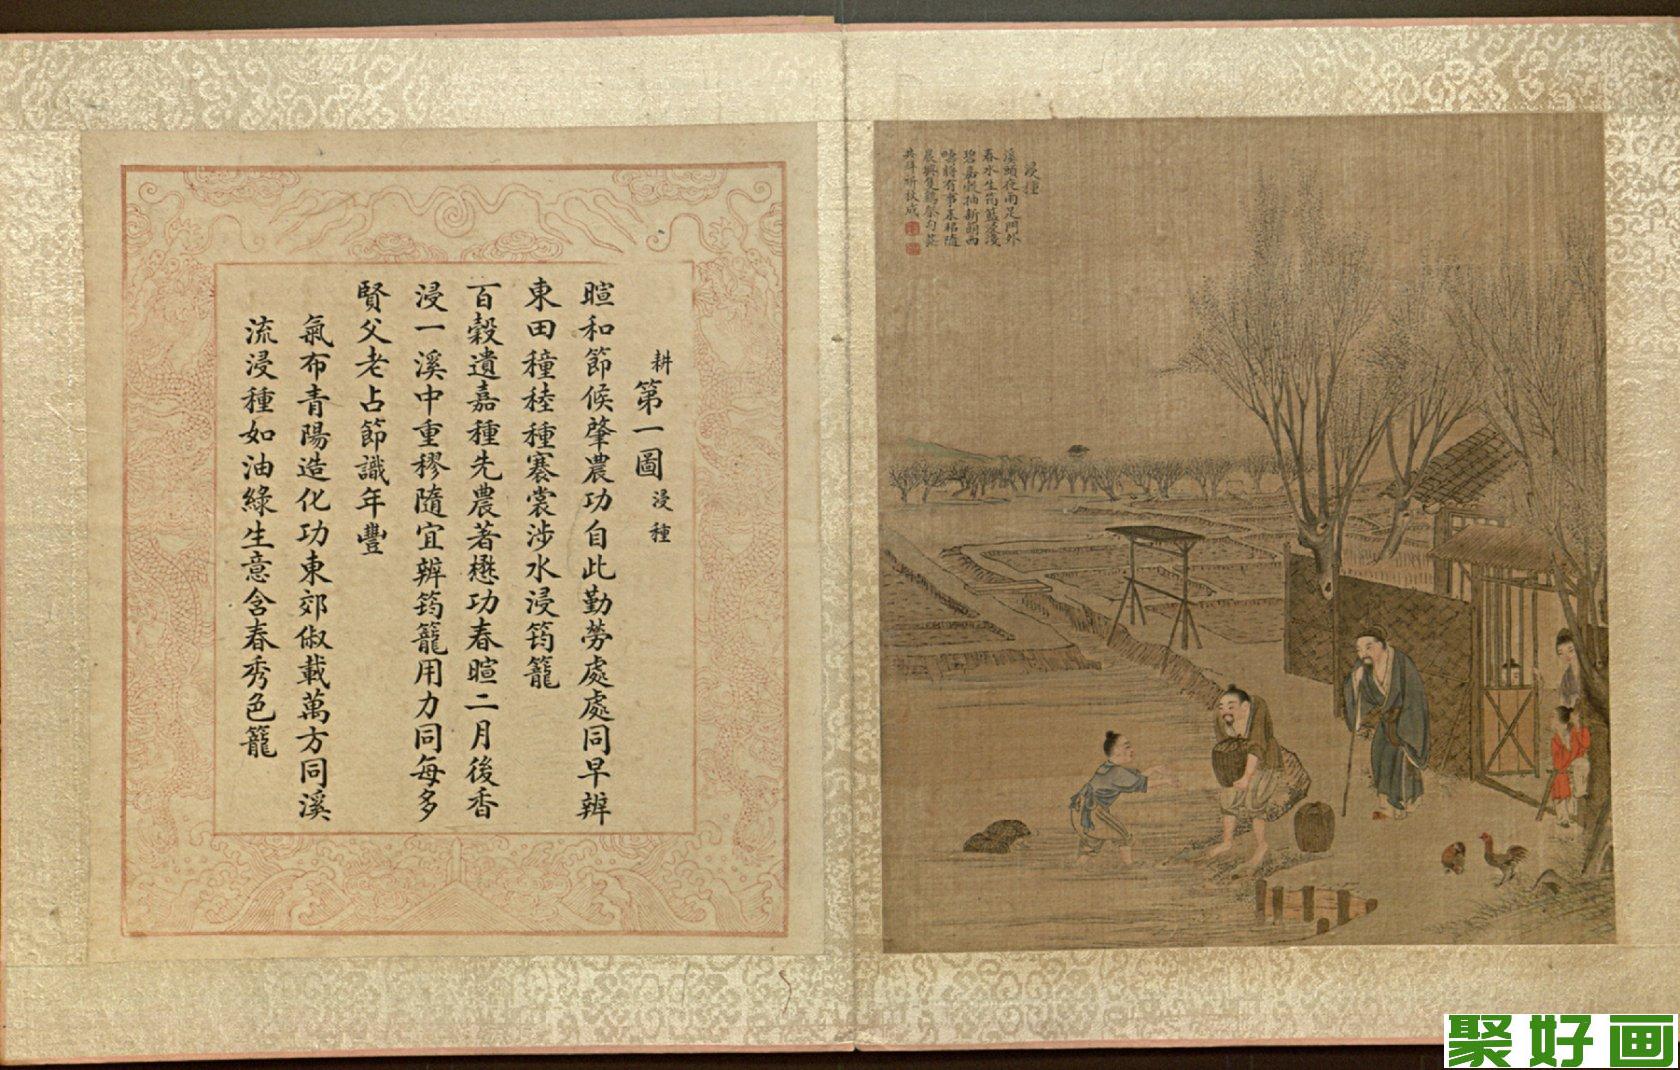 浸種
溪頭夜雨足門外
春水生筠籃浸淺
碧嘉穀抽新萌西
疇將有事耒耜隨
晨興隻雞祭勾芒
拜祈秋成
耕第一圖浸種
暄和節候肇農功自此勤勞處處同早辨
東田穜稑種褰裳涉水浸筠籠
百穀遺嘉種先農著懋功春暄二月後香
浸一溪中重穋隨宜辨筠籠用力同每多
賢父老占節識年豐
氣布青陽造化功東郊俶載萬方同溪
流浸種如油綠生意含春秀色籠
聚好画